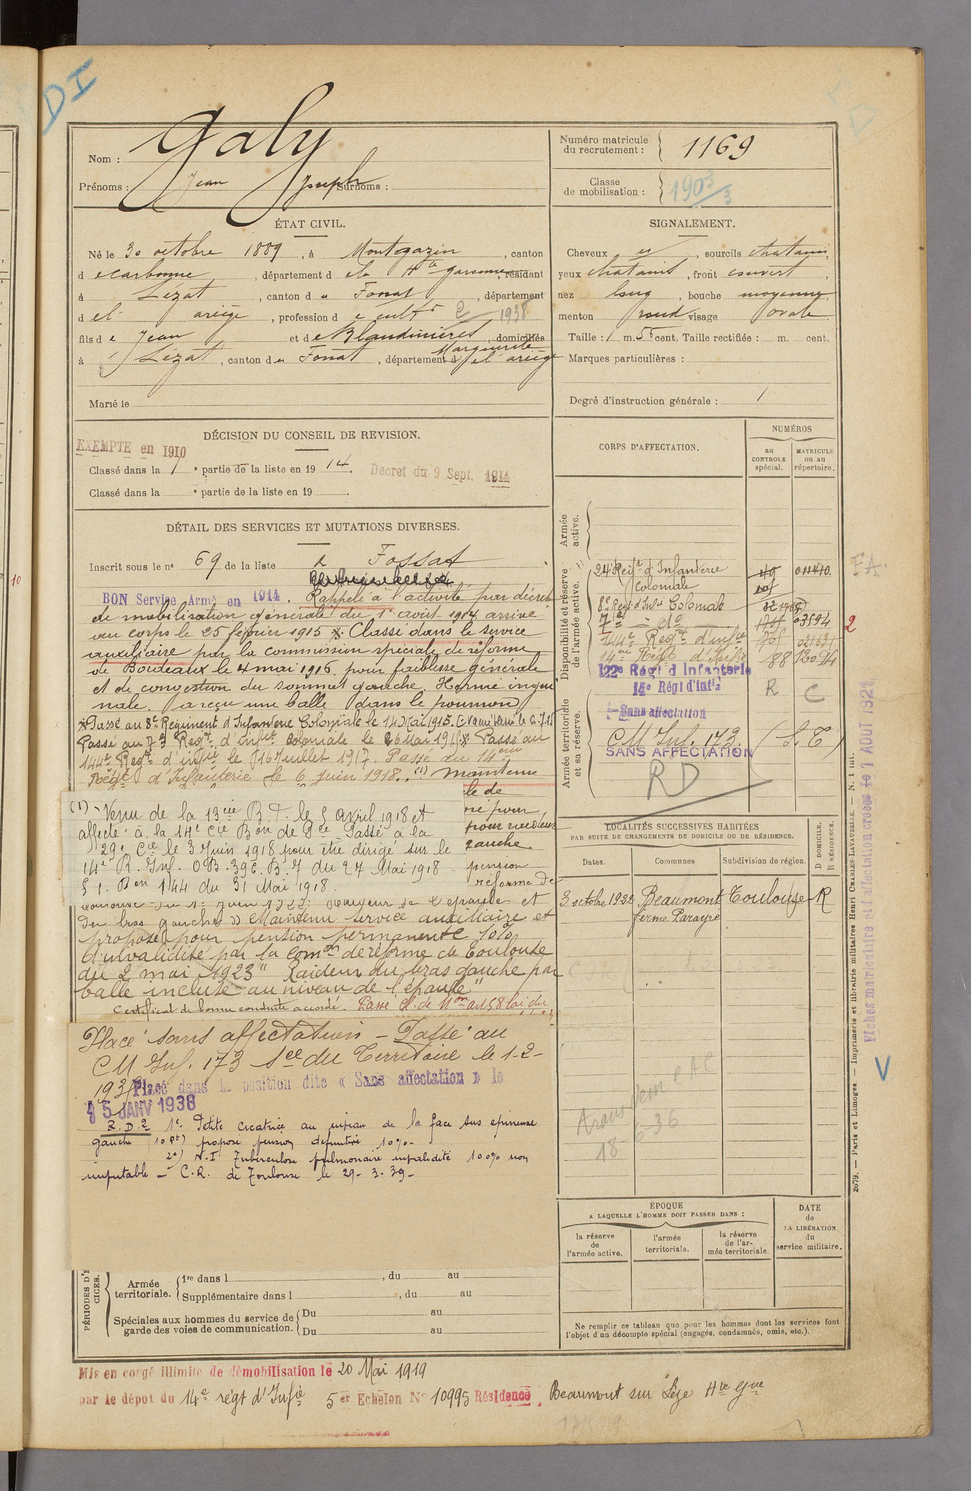 DI
Galy
Nom :
Prénoms : Jean Joseph Surnoms :
Numéro matricule
du recrutement :
1169
Classe
de mobilisation :
1903/3
ÉTAT CIVIL.
Né le 30 octobre 1889, à Montgazin, canton
d e Carbonne, département d e la Hte Garonne, résidant
à Lezat, canton d u Fossat, département
d e l'ariège, profession d e cultr 2 1938
fils d e Jean et d e Blandinières Marguerite, domiciliés
à Lézat, canton d u Fossat, département d e l'ariège
Marié le
SIGNALEMENT.
Cheveux et, sourcils chatains,
yeux chatains, front couvert,
nez long, bouche moyenne,
menton rond visage ovale.
Taille : 1 m. 55 cent. Taille rectifiée : m. cent.
Marques particulières :
Degré d'instruction générale : 1
DÉCISION DU CONSEIL DE REVISION.
EXEMPTÉ en 1910
Classé dans la 1e partie de la liste en 1914. Decret du 9 Sept. 1914
Classé dans la e partie de la liste en 19 .
DÉTAIL DES SERVICES ET MUTATIONS DIVERSES.
Inscrit sous le n° 69 de la liste d Fossat
BON Service Armé en 1914. Rappelé à l'activité par décret
de mobilisation générale du 1er août 1914 arrivé
au corps le 25 février 1915 * Classé dans le service
auxiliaire par la commission spéciale de réforme
de Bordeaux le 4 mai 1916 pour faiblesse générale
et de convection du sommet gauche. Hernie ingui
nale. a reçu une balle dans le poumon
* Passé au 8e Régiment d'Infanterie Coloniale le 14 Mai 1915.
Passé au 7e Regt d'infie coloniale le 26 Mai 1916. Passé au
144e Regt d'infie le 16 juillet 1917. Passé du 14eme
Regt d'Infanterie le 6 juin 1918. (1) Maintenu
le de
ré pour
pour raideur
gauche
pension
réforme de
(1) - Venu de la 13eie B.T. le 5 avril 1918 et
affecté à la 14e Cie Bon de Pce Passé à la
29e Cie le 3 Juin 1918 pour être dirigé sur le
14e R. Inf. OB. 396 B. 7 du 27 Mai 1918
§ 1. Bon 144 du 31 Mai 1918.
du bras gauche" Maintenu service auxiliaire et
proposé pour pension permanente 10%
d'invalidité par la Comon de réforme de Toulouse
du 2 mai 1923 "Raideur du bras gauche par
balle incluse au niveau de l'épaule"
Certificat de bonne conduite accordé. Passé Cl. de Mon art 58 loi du
Placé sans affectation - Passé au
CM Inf. 173 See du Territoire le 1-2-
193
Placé dans la position dite « Sans affectation » le
15 JANV 1938
R.D.2 1° Petite cicatrice au niveau de la face sus epineuse
gauche 10% proposé pension définitive 10%-
2°) N.I Tuberculose pulmonaire invalidité 100% non
imputable - C.R. de Toulouse le 29-3-39-
CORPS D'AFFECTATION.
NUMÉROS
au
CONTROLE
spécial.
MATRICULE
ou au
répertoire.
Armée
active.
Disponibilité et réserve
de l'armée active.
Armée territoriale
et sa réserve.
24e Regt d'Infanterie
Coloniale
8e Regt d'Infie Coloniale
7e - do - 03594
144e Regt d'infie
14eme Regt d'Infie 88
122e Régt d'Infanterie
14e Régt d'Infie R C
Sans affectation
CM Inf. 173 (S.T)
SANS AFFECTATION
RD
EA
2
LOCALITÉS SUCCESSIVES HABITÉES
PAR SUITE DE CHANGEMENTS DE DOMICILE OU DE RÉSIDENCE.
Dates. Communes Subdivision de région. D DOMICILE. R RÉSIDENCE.
3 octobre 1928 Beaumont Toulouse R
ferme Parayré
18-6-36
ÉPOQUE
A LAQUELLE L'HOMME DOIT PASSER DANS :
la réserve
de
l'armée active.
l'armée
territoriale.
la réserve
de l'ar-
mée territoriale.
DATE
de
LA LIBÉRATION
du
service militaire.
Ne remplir ce tableau que pour les hommes dont les services font
l'objet d'un décompte spécial (engagés, condamnés, omis, etc.).
PÉRIODES D'
CICES.
Armée
territoriale.
1re dans l , du au
Supplémentaire dans l , du au
Spéciales aux hommes du service de
garde des voies de communication.
Du au
Du au
Mis en congé illimité de démobilisation le 20 Mai 1919
par le dépôt du 14e régt d'Infie 5er Echelon N° 10995 Résidence. Beaumont sur Lèze Hte Gne
Fiches matriculaire et d'affectation créées le 1 AOUT 1921
2079. — Paris et Limoges. — Imprimerie et librairie militaires Henri CHARLES-LAVAUZELLE. — N. 1 bis.
10